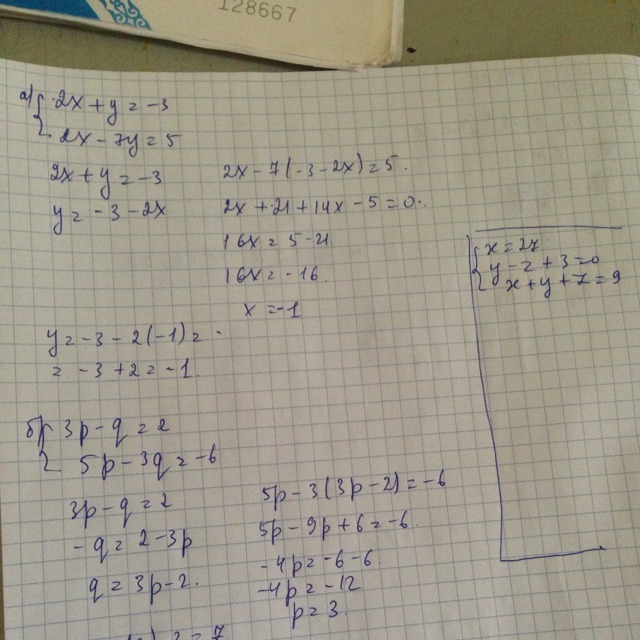 128667
а) { 2x + y = -3
2x - 7y = 5
2x + y = -3
y = -3 - 2x
2x - 7(-3 - 2x) = 5.
2x + 21 + 14x - 5 = 0.
16x = 5 - 21
16x = -16
x = -1
y = -3 - 2(-1) =
= -3 + 2 = -1
б) { 3p - q = 2
5p - 3q = -6
3p - q = 2
-q = 2 - 3p
q = 3p - 2.
5p - 3(3p - 2) = -6
5p - 9p + 6 = -6
-4p = -6 - 6
-4p = -12
p = 3
{ x = 2z
y - z + 3 = 0
x + y + z = 9